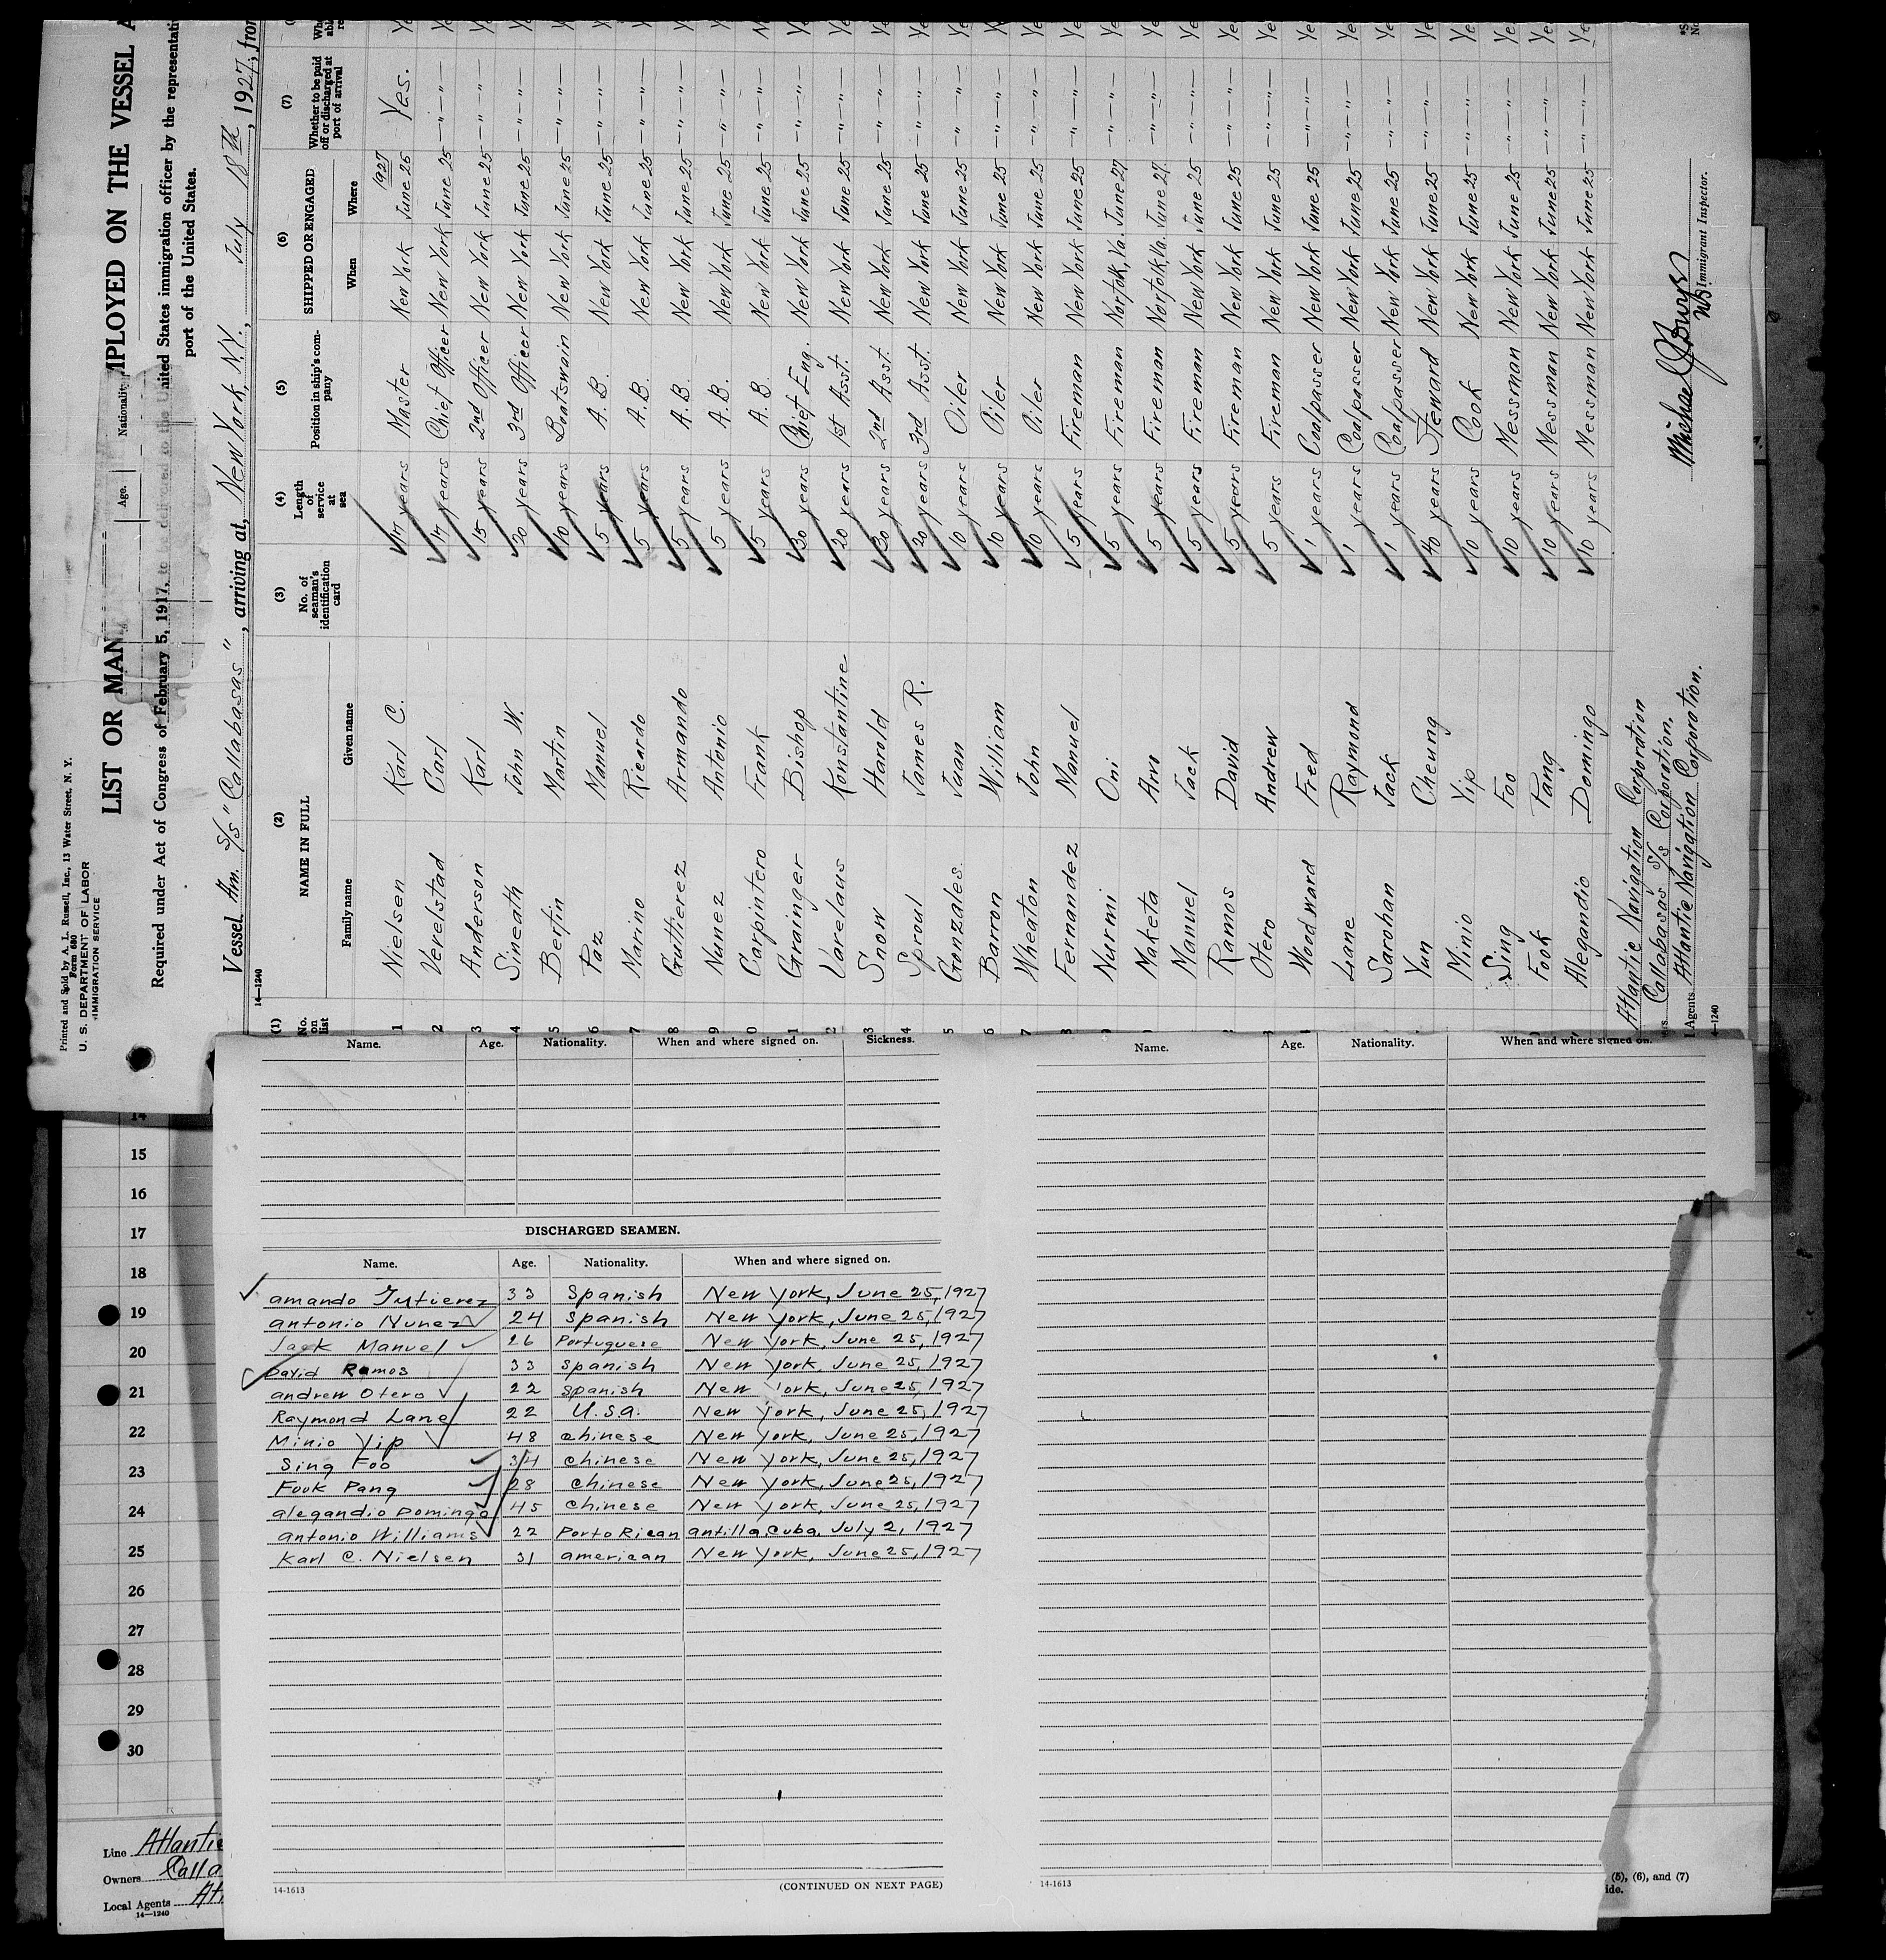 Printed and Sold by A. L. Russell, Inc., 13 Water Street, N. Y.
Form 680
U. S. DEPARTMENT OF LABOR
IMMIGRATION SERVICE
LIST OR MAN
MPLOYED ON THE VESSEL A
Age. Nationality.
Required under Act of Congress of February 5, 1917, to be delivered to the United States immigration officer by the representati
port of the United States.
Vessel Am. S/s "Callabasas", arriving at, New York, N.Y., July 18th, 1927, from
14—1240
(1) (2) (3) (4) (5) (6) (7)
No. on list NAME IN FULL No. of seaman's identification card Length of service at sea Position in ship's company SHIPPED OR ENGAGED Whether to be paid off or discharged at port of arrival
Family name Given name When Where
1 Nielsen Karl C. 14 years Master New York June 25 1927 Yes.
2 Verelstad Carl 14 years Chief Officer New York June 25 —"—"—
3 Anderson Karl 15 years 2nd Officer New York June 25 —"—"—
4 Sineath John W. 20 years 3rd Officer New York June 25 —"—"—
5 Bertin Martin 10 years Boatswain New York June 25 —"—"—
6 Paz Manuel 5 years A.B. New York June 25 —"—"—
7 Marino Ricardo 5 years A.B. New York June 25 —"—"—
8 Guttierez Armando 5 years A.B. New York June 25 —"—"—
9 Nunez Antonio 5 years A.B. New York June 25 —"—"—
0 Carpintero Frank 5 years A.B. New York June 25 —"—"—
1 Grainger Bishop 30 years Chief Eng. New York June 25 —"—"—
2 Varelaus Konstantine 20 years 1st Asst. New York June 25 —"—"—
3 Snow Harold 30 years 2nd Asst. New York June 25 —"—"—
4 Sproul James R. 20 years 3rd Asst. New York June 25 —"—"—
5 Gonzales Juan 10 years Oiler New York June 25 —"—"—
6 Barron William 10 years Oiler New York June 25 —"—"—
7 Wheaton John 10 years Oiler New York June 25 —"—"—
8 Fernandez Manuel 5 years Fireman New York June 25 —"—"—
Nurmi Oni 5 years Fireman Norfolk, Va. June 27 —"—"—
Maketa Arvo 5 years Fireman Norfolk, Va. June 27. —"—"—
Manuel Jack 5 years Fireman New York June 25 —"—"—
Ramos David 5 years Fireman New York June 25 —"—"—
Otero Andrew 5 years Fireman New York June 25 —"—"—
Woodward Fred 1 years Coalpasser New York June 25 —"—"—
Lane Raymond 1 years Coalpasser New York June 25 —"—"—
Sarohan Jack 1 years Coalpasser New York June 25 —"—"—
Yun Cheung 40 years Steward New York June 25 —"—"—
Minio Yip 10 years Cook New York June 25 —"—"—
Sing Foo 10 years Messman New York June 25 —"—"—
Fook Pang 10 years Messman New York June 25 —"—"—
Alegandio Domingo 10 years Messman New York June 25 —"—"—
Atlantic Navigation Corporation
Callabasas S/s Corporation.
Agents Atlantic Navigation Corporation.
14—1240
Immigrant Inspector.
Name. Age. Nationality. When and where signed on. Sickness.
Name. Age. Nationality. When and where signed on.
DISCHARGED SEAMEN.
Name. Age. Nationality. When and where signed on.
amando Gutierez 33 Spanish New York, June 25, 1927
antonio Nunez 24 Spanish New York, June 25, 1927
Jack Manuel 26 Portuguese New York, June 25, 1927
David Ramos 33 Spanish New York, June 25, 1927
andrew Otero 22 Spanish New York, June 25, 1927
Raymond Lane 22 U.S.a. New York, June 25, 1927
Minio Yip 48 chinese New York, June 25, 1927
Sing Foo 34 chinese New York, June 25, 1927
Fook Pang 28 chinese New York, June 25, 1927
alegandio Domingo 45 chinese New York, June 25, 1927
antonio Williams 22 Porto Rican antilla, Cuba, July 2, 1927
Karl C. Nielsen 31 american New York, June 25, 1927
14-1613
(CONTINUED ON NEXT PAGE)
14-1613
14
15
16
17
18
19
20
21
22
23
24
25
26
27
28
29
30
Line Atlantic
Owners Calla
Local Agents At
14—1240
(5), (6), and (7)
ide.